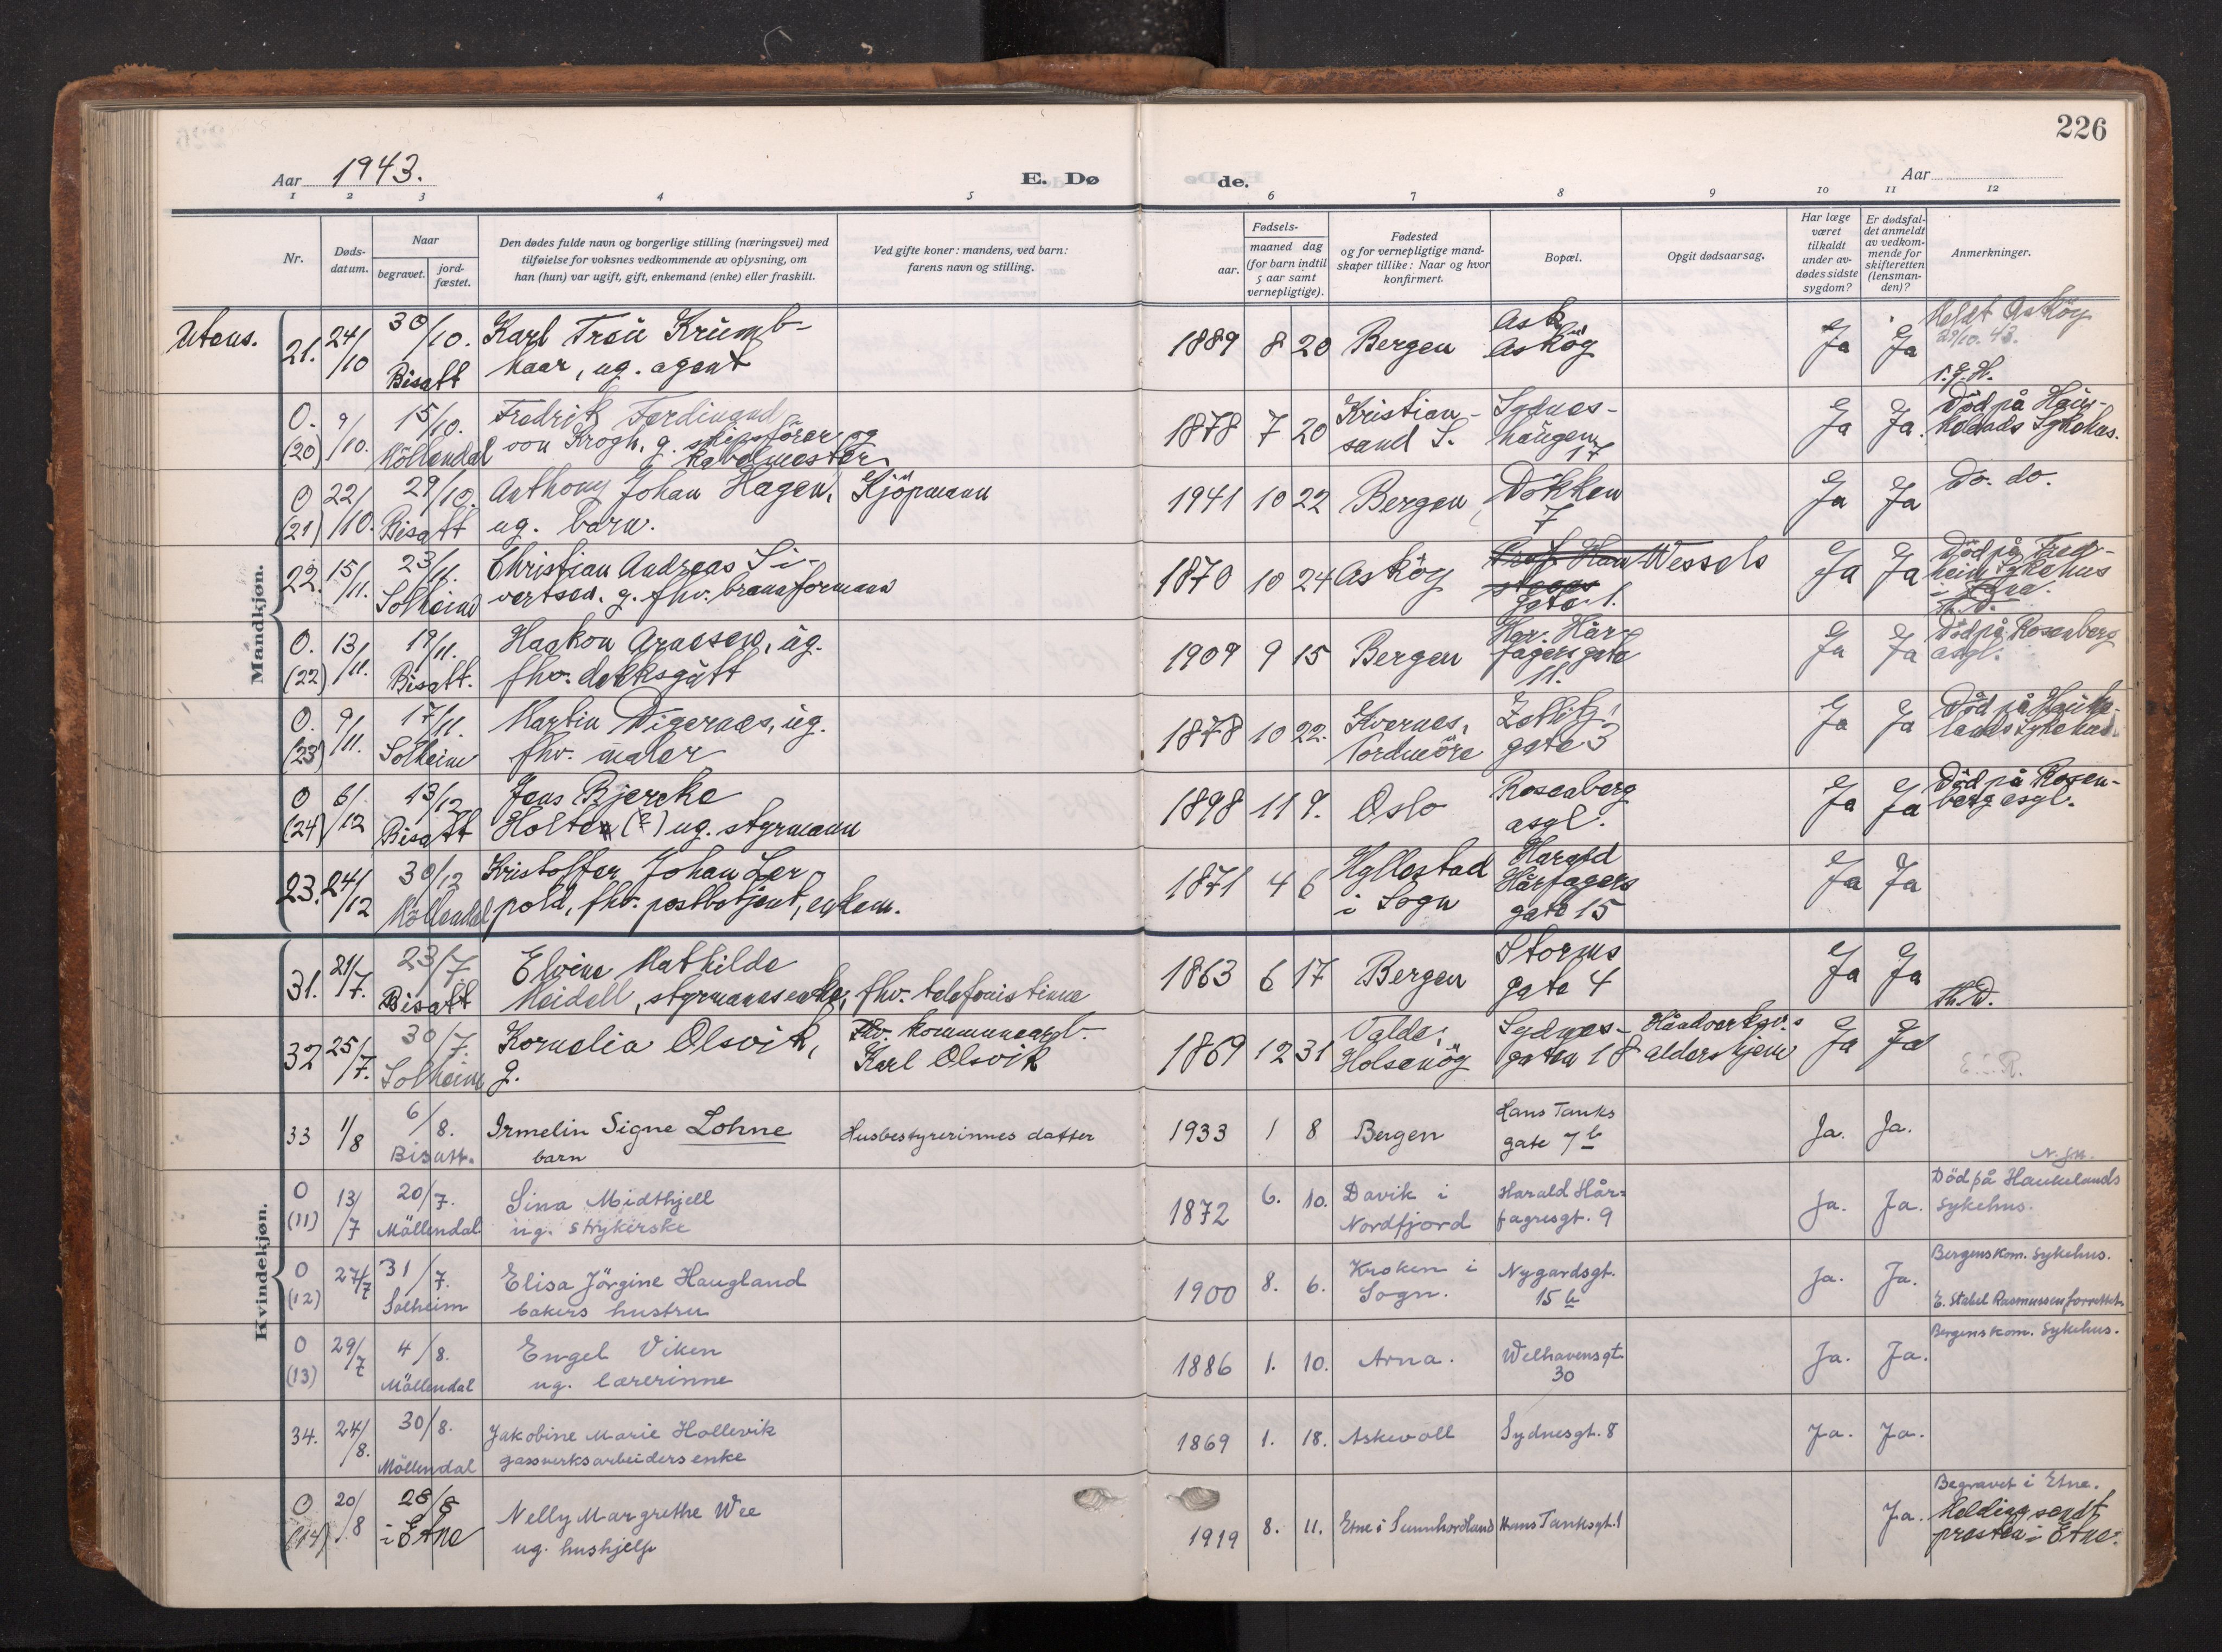 226
Aar 1943. E. Dø de. Aar
1 2 3 4 5 6 7 8 9 10 11 12
Nr.
Døds-
datum.
Naar
begravet.
jord-
fæstet.
Den dødes fulde navn og borgerlige stilling (næringsvei) med
tilføielse for voksnes vedkommende av oplysning, om
han (hun) var ugift, gift, enkemand (enke) eller fraskilt.
Ved gifte koner: mandens, ved barn:
farens navn og stilling.
Fødsels-
aar.
maaned dag
(for barn indtil
5 aar samt
vernepligtige).
Fødested
og for vernepligtige mand-
skaper tillike: Naar og hvor
konfirmert.
Bopæl.
Opgit dødsaarsag.
Har læge
været
tilkaldt
under av-
dødes sidste
sygdom?
Er dødsfal-
det anmeldt
av vedkom-
mende for
skifteretten
(lensman-
den)?
Anmerkninger.
Mandkjøn.
Utens.
21. 24/10 30/10. Bisatt
Karl Trau Krümb-
haar, ug. agent
1889 8 20 Bergen
Ask
Asköy
Ja Ja
Meldt Asköy
29/10. 43.
O. (20) 9/10. 15/10. Möllendal
Fredrik Ferdinand
von Krogh, g. skipsförer og
kabelmester
1878 7 20
Kristian-
sand S.
Sydnes-
haugen
17
Ja Ja.
Död på Hau-
kelands Sykehus.
O (21) 22/10. 29/10. Bisatt
Anthony Johan Hagen,
ug. barn.
Kjöpmann
1941 10 22 Bergen
Dokken
7
Ja Ja
Do. do.
22. 15/11. 23/11. Solheim
Christian Andreas Si-
vertsen, g. fhv. brannformann
1870 10 24 Asköy
Wessels
gate 1.
Ja Ja
Död på
Sykehus
Th. D.
O. (22) 13/11. 19/11. Bisatt.
Haakon Arnesen, ug.
fhv. dekksgutt
1909 9 15 Bergen
Har. Hår-
fagersgate
11.
Ja Ja
Död på Rosenberg
asyl.
O. (23) 9/11. 17/11. Solheim
Martin Digernes, ug.
fhv. maler
1878 10 22.
Kvernes,
Nordmöre
Zetlitz'
gate 3
Ja Ja
Död på Hauke-
lands Sykehus.
O (24) 6/12 13/12 Bisatt
Jens Bjercke
Holter (?) ug. styrmann
1898 11 9. Oslo
Rosenberg
asyl.
Ja Ja
Död på Rosen-
berg asyl.
23. 24/12 30/12 Möllendal
Kristoffer Johan Ler-
pold, fhv. postbetjent, enkem.
1871 4 6
Hyllestad
i Sogn
Harald
Hårfagers
gate 15
Ja Ja
Kvindekjøn.
31. 21/7. 23/7. Bisatt
Elvine Mathilde
Meidell, styrmannsenke, fhv. telefonistinne
1863 6 17 Bergen
Storms
gate 4
Ja Ja
Th. D.
32 25/7. 30/7. Solheim
Kornelia Olsvik,
g.
Fhv. kommunearb.
Karl Olsvik
1869 12 31
Valde,
Holsenöy
Sydnes-
gaten 18
Håndverksv.s
aldershjem
Ja Ja
33 1/8 6/8. Bisatt.
Irmelin Signe Lohne
barn
Husbestyrerinnes datter
1933 1 8 Bergen
Hans Tanks
gate 7 b
Ja. Ja.
O (11) 13/7 20/7. Möllendal.
Sina Midthjell
ug. strykerske
1872 6. 10.
Davik i
Nordfjord
Harald Hår-
fagresgt. 9
Ja. Ja.
Död på Haukelands
Sykehus.
O (12) 27/7 31/7. Solheim
Elisa Jörgine Haugland
bakers hustru
1900 8. 6.
Kroken i
Sogn.
Nygardsgt.
15 b
Ja. Ja.
Bergens kom. Sykehus.
E. Stabel Rasmussen forrettet.
O (13) 29/7 4/8. Möllendal
Engel Viken
ug. lærerinne
1886 1. 10. Arna.
Welhavensgt.
30
Ja. Ja.
Bergens kom. Sykehus.
34. 24/8. 30/8. Möllendal
Jakobine Marie Hollevik
gassverksarbeiders enke
1869 1. 18. Askevoll
Sydnesgt. 8
Ja. Ja.
O (14) 20/8 28/8 i Etne
Nelly Margrethe Wee
ug. hushjelp
1919 8. 11. Etne i Sunnhordland Hans Tanksgt. 1
Ja.
Begravet i Etne.
Melding sendt
presten i Etne.